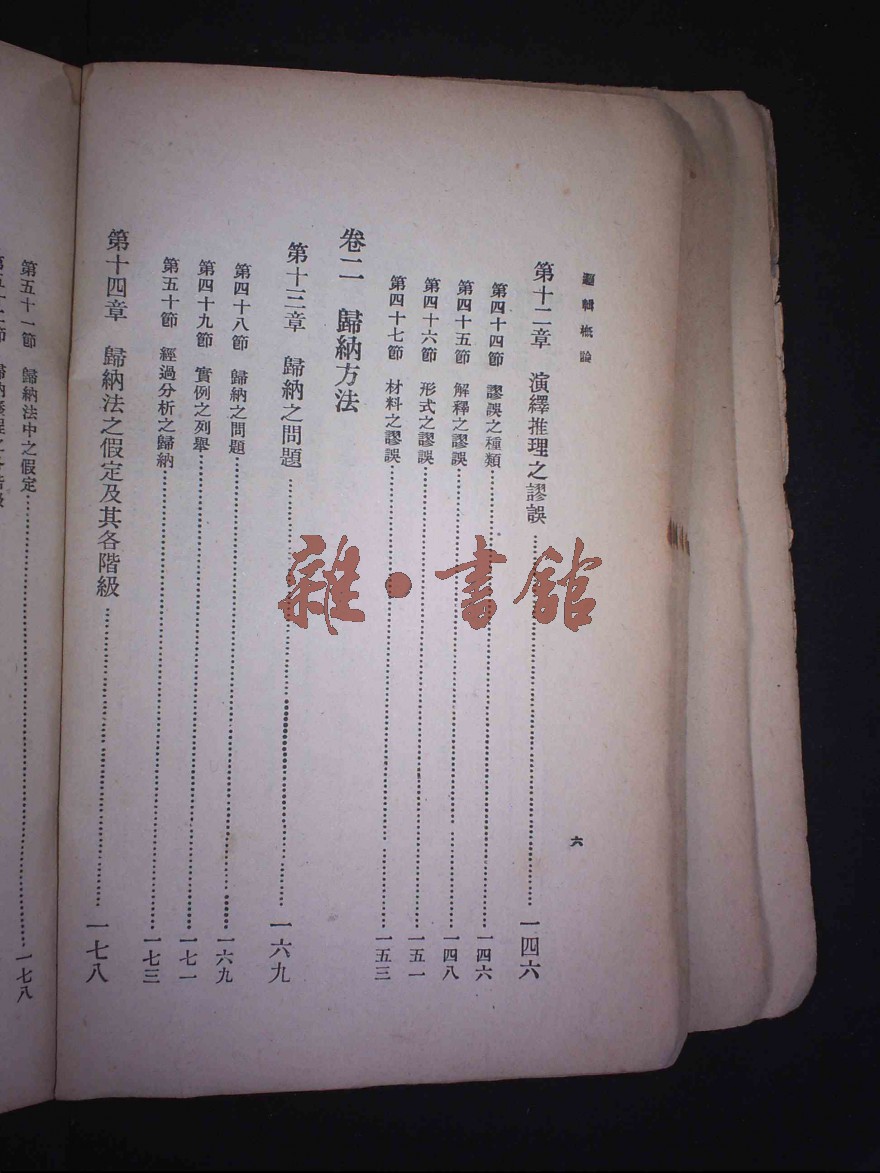 邏輯概論
六
第十二章　演繹推理之謬誤……一四六
第四十四節　謬誤之種類……一四六
第四十五節　解釋之謬誤……一四八
第四十六節　形式之謬誤……一五一
第四十七節　材料之謬誤……一五三
卷二　歸納方法
第十三章　歸納之問題……一六九
第四十八節　歸納之問題……一六九
第四十九節　實例之列舉……一七一
第五十節　經過分析之歸納……一七三
第十四章　歸納法之假定及其各階級……一七八
第五十一節　歸納法中之假定……一七八
雜·書館